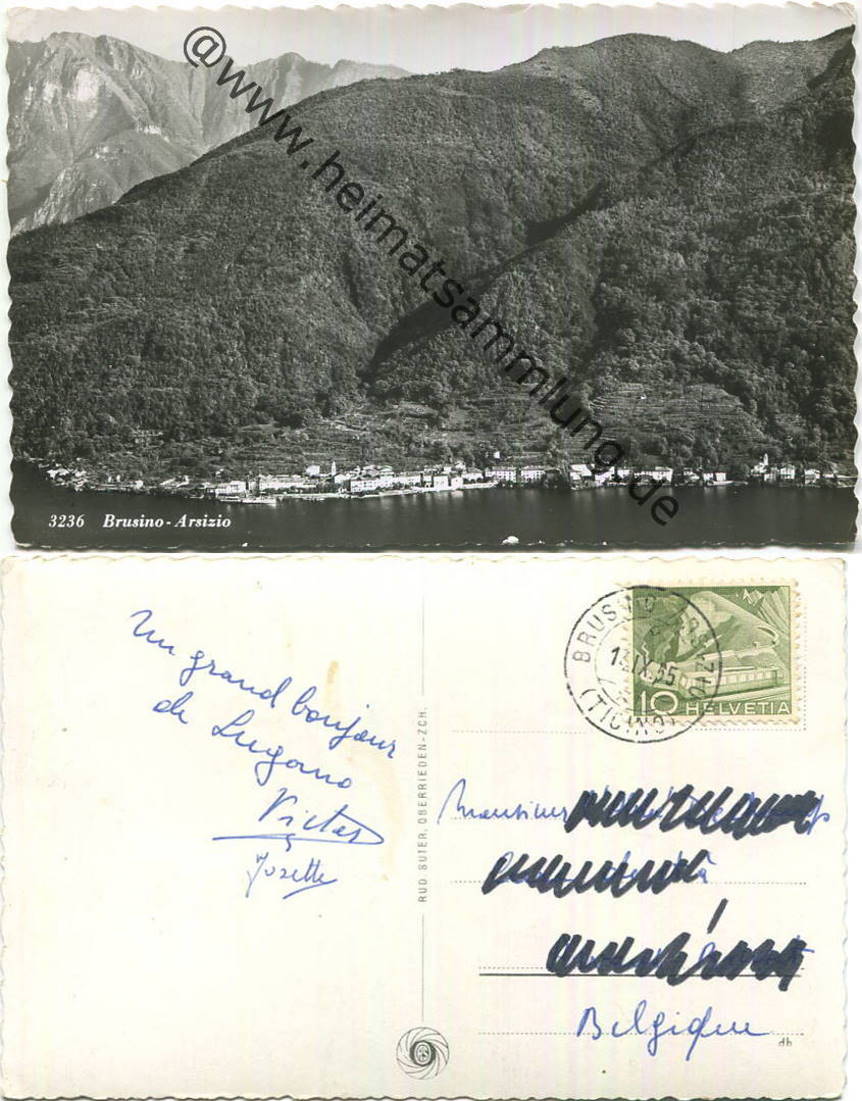 @www.heimatsammlung.de
3236 Brusino-Arsizio
Un grand bonjour
de Lugano
Victor
Josette
RUD. SUTER, OBERRIEDEN-ZCH.
BRUSINO ARSIZIO
13.IX.55
(TICINO)
10 HELVETIA
Monsieur
Belgique
db